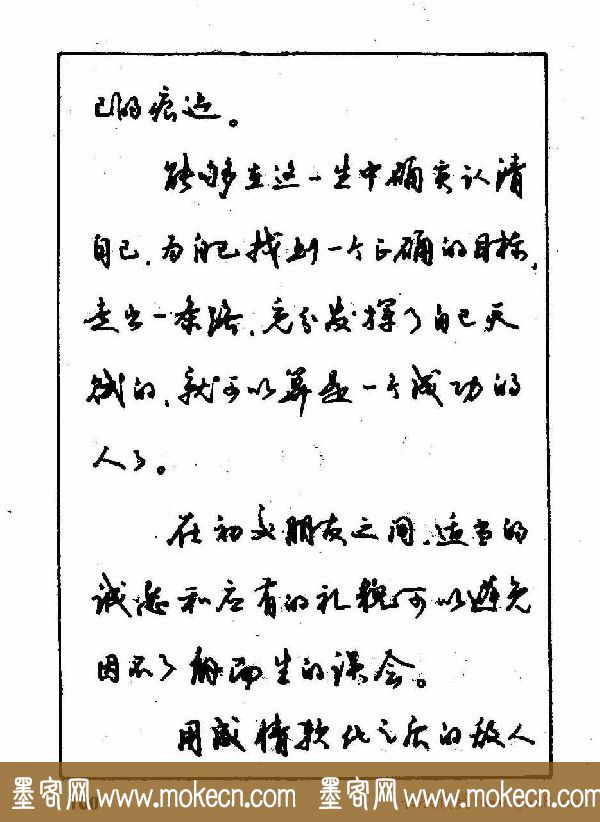 己的痕迹。
能够在这一生中确实认清
自己，为自己找到一个正确的目标，
走出一条路，充分发挥了自己天
赋的，就可以算是一个成功的
人了。
在初交朋友之间，适当的
诚恳和应有的礼貌可以避免
因不了解而生的误会。
用感情软化之后的敌人
墨客网 www.mokecn.com 墨客网 www.mokecn.com